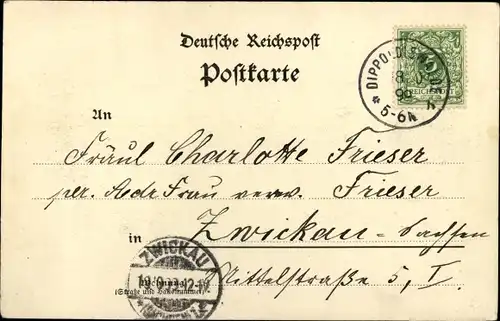 Deutsche Reichspost
Postkarte
DIPPOLDISWALDE
5-6N
REICHSPOST
An
Fräul Charlotte Frieser
per. Adr Frau verw. Frieser
in Zwickau-Sachsen
ZWICKAU
Wohnung
Mittelstraße 5, I.
(Straße und Hausnummer)